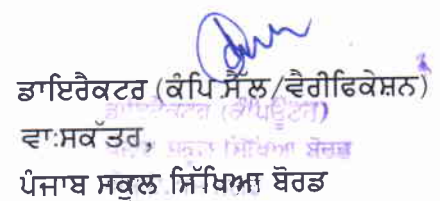 ਡਾਇਰੈਕਟਰ (ਕੰਪਿ.ਸੈੱਲ/ਵੈਰੀਫਿਕੇਸ਼ਨ)
ਡਾਇਰੈਕਟਰ (ਕੰਪਿਊਟਰ)
ਵਾ:ਸਕੱਤਰ,
ਪੰਜਾਬ ਸਕੂਲ ਸਿੱਖਿਆ ਬੋਰਡ
ਪੰਜਾਬ ਸਕੂਲ ਸਿੱਖਿਆ ਬੋਰਡ